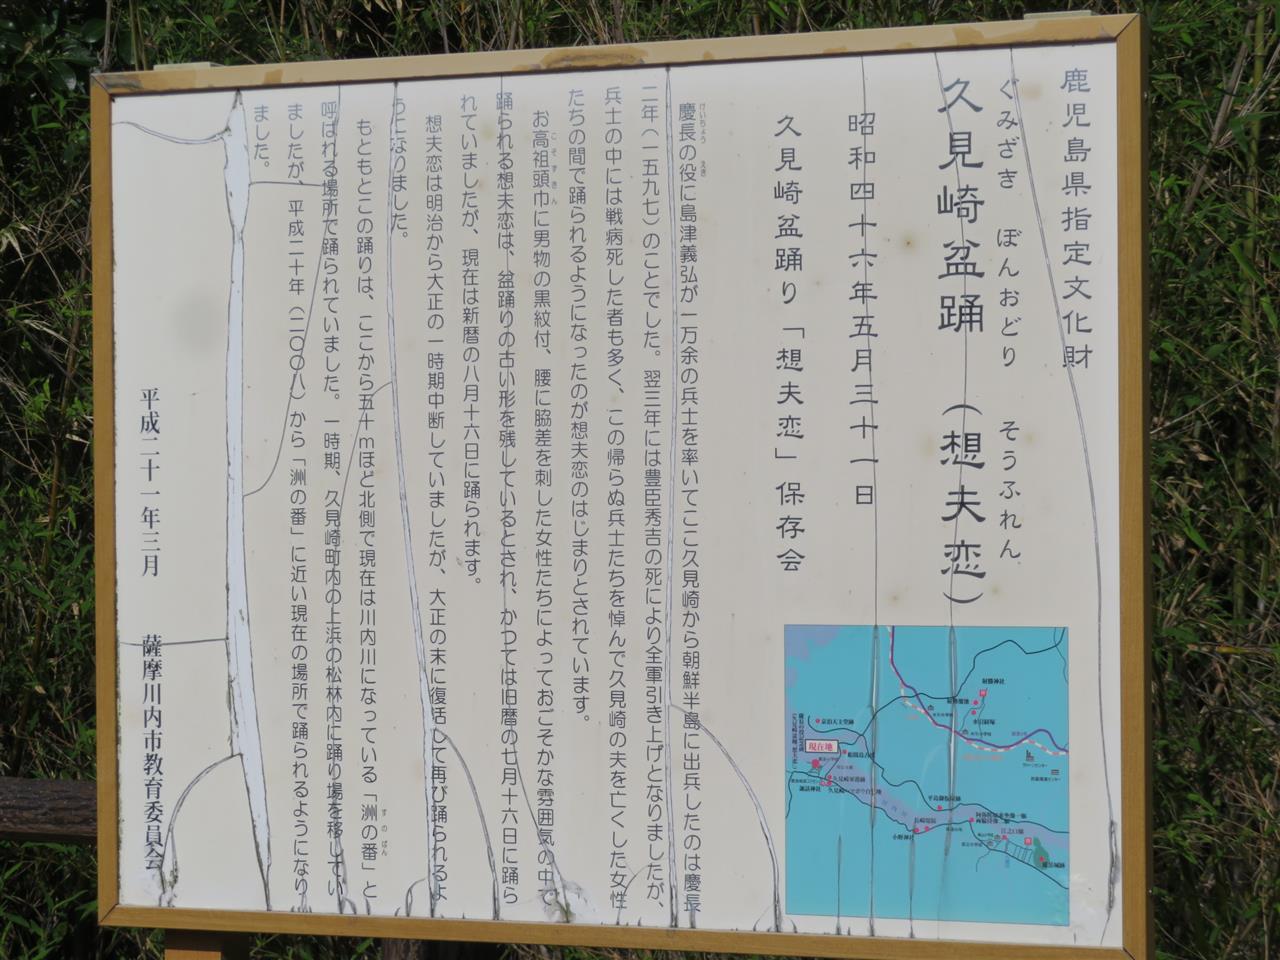 鹿児島県指定文化財
ぐみざき ぼんおどり そうふれん
久見崎盆踊（想夫恋）
昭和四十六年五月三十一日
久見崎盆踊り「想夫恋」保存会
けいちょう えき
慶長の役に島津義弘が一万余の兵士を率いてここ久見崎から朝鮮半島に出兵したのは慶長
二年（一五九七）のことでした。翌三年には豊臣秀吉の死により全軍引き上げとなりましたが、
兵士の中には戦病死した者も多く、この帰らぬ兵士たちを悼んで久見崎の夫を亡くした女性
たちの間で踊られるようになったのが想夫恋のはじまりとされています。
こそずきん
お高祖頭巾に男物の黒紋付、腰に脇差を刺した女性たちによっておごそかな雰囲気の中で
踊られる想夫恋は、盆踊りの古い形を残しているとされ、かつては旧暦の七月十六日に踊ら
れていましたが、現在は新暦の八月十六日に踊られます。
想夫恋は明治から大正の一時期中断していましたが、大正の末に復活して再び踊られるよ
うになりました。
すのばん
もともとこの踊りは、ここから五十ｍほど北側で現在は川内川になっている「洲の番」と
呼ばれる場所で踊られていました。一時期、久見崎町内の上浜の松林内に踊り場を移してい
ましたが、平成二十年（二〇〇八）から「洲の番」に近い現在の場所で踊られるようになり
ました。
平成二十一年三月 薩摩川内市教育委員会
現在地
諏訪神社
小野神社